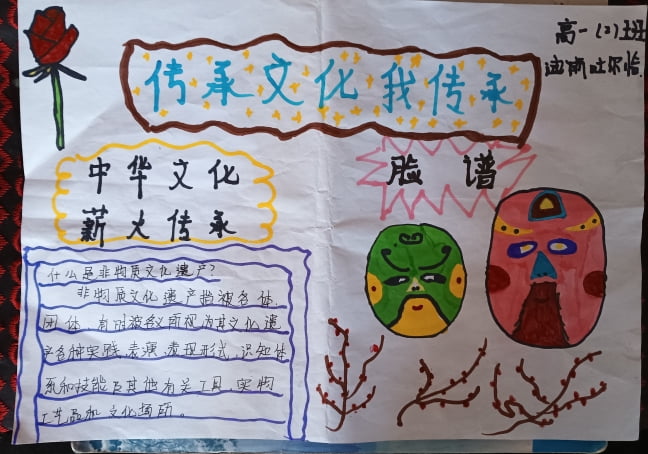 传承文化我传承
高一(2)班
中华文化
薪火传承
脸谱
什么是非物质文化遗产?
非物质文化遗产指被各体.
团体、有时被各人所视为其文化遗
产各种实践、表演、表现形式、识知体
系和技能及其他有关工具、实物
工艺品和文化场所。